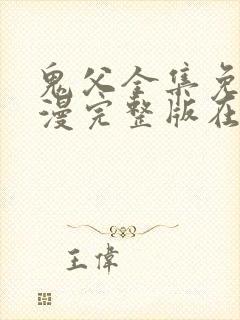 鬼父全集免
漫完整版在
王偉